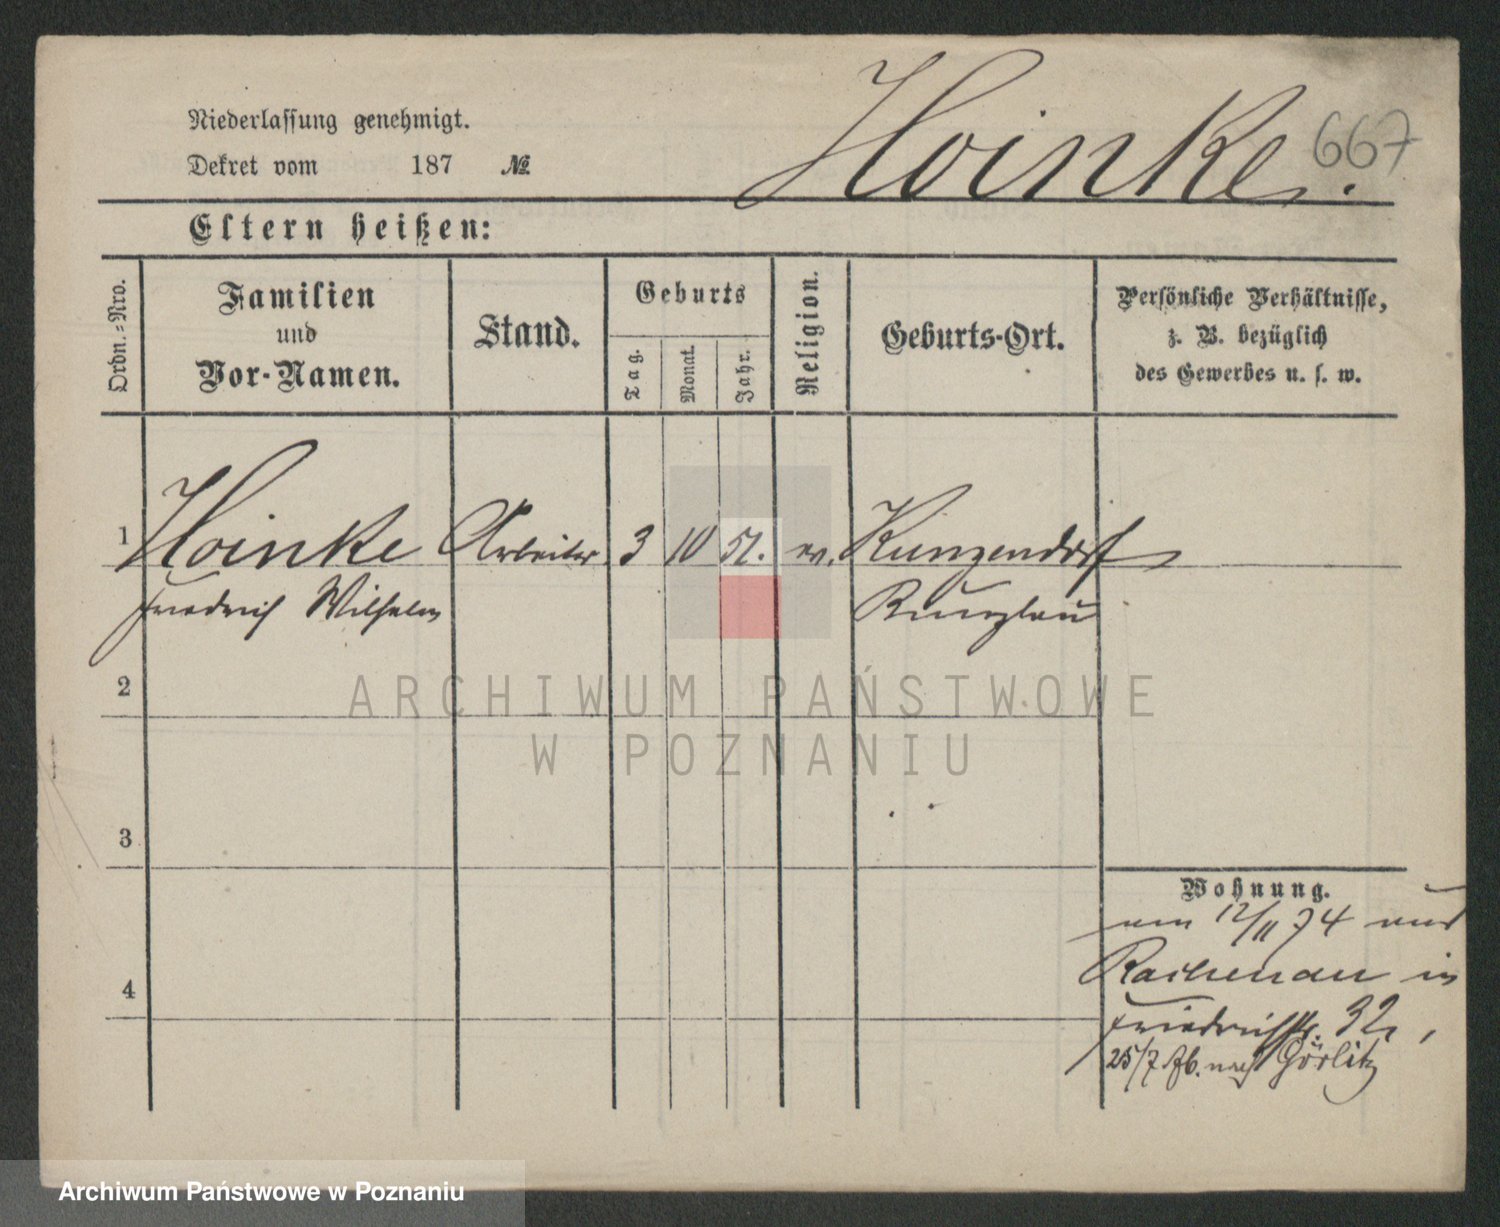 Hoinke. 667
Niederlassung genehmigt.
Dekret vom 187 №
Eltern heißen:
Ordn.=Nro.
Familien
und
Vor-Namen.
Stand.
Geburts
Tag.
Monat.
Jahr.
Religion.
Geburts-Ort.
Persönliche Verhältnisse,
z. B. bezüglich
des Gewerbes u. s. w.
1 Hoinke Arbeiter 3 10 51. ev. Kunzendorf
Friedrich Wilhelm Bunzlau
2
ARCHIWUM PAŃSTWOWE
W POZNANIU
3
Wohnung.
12/11 74 aus
in
4
Friedrichstr. 32,
25/7 76. nach Görlitz
Archiwum Państwowe w Poznaniu